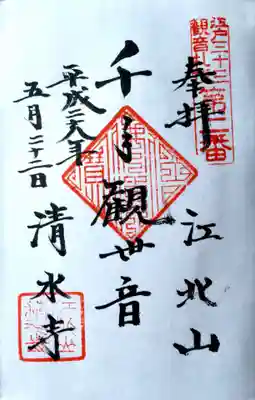 江戸三十三
観音札所第二番
奉拝
江北山
千手觀世音
平成二八年
五月二十二日
清水寺